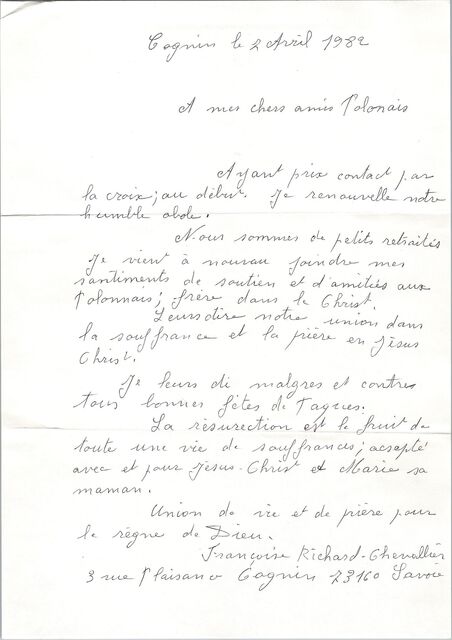 Cognin le 2 Avril 1982
A mes chers amis Polonais
Ayant prix contact par
la croix; au début. Je renouvelle notre
humble obole.
Nous sommes de petits retraités
Je vient à nouveau joindre mes
santiments de soutien et d'amitiés aux
Polonnais; frère dans le Christ.
Leurs dire notre union dans
la souffrance et la prière en Jésus
Christ.
Je leurs di malgres et contres
tous bonnes fêtes de Pâques.
La résurection est le fruit de
toute une vie de souffrances; acsepté
avec et pour Jésus-Christ et Marie sa
maman.
Union de vie et de prière pour
le règne de Dieu.
Françoise Richard-Chevallier
3 rue Plaisance Cognin 73160 Savoie